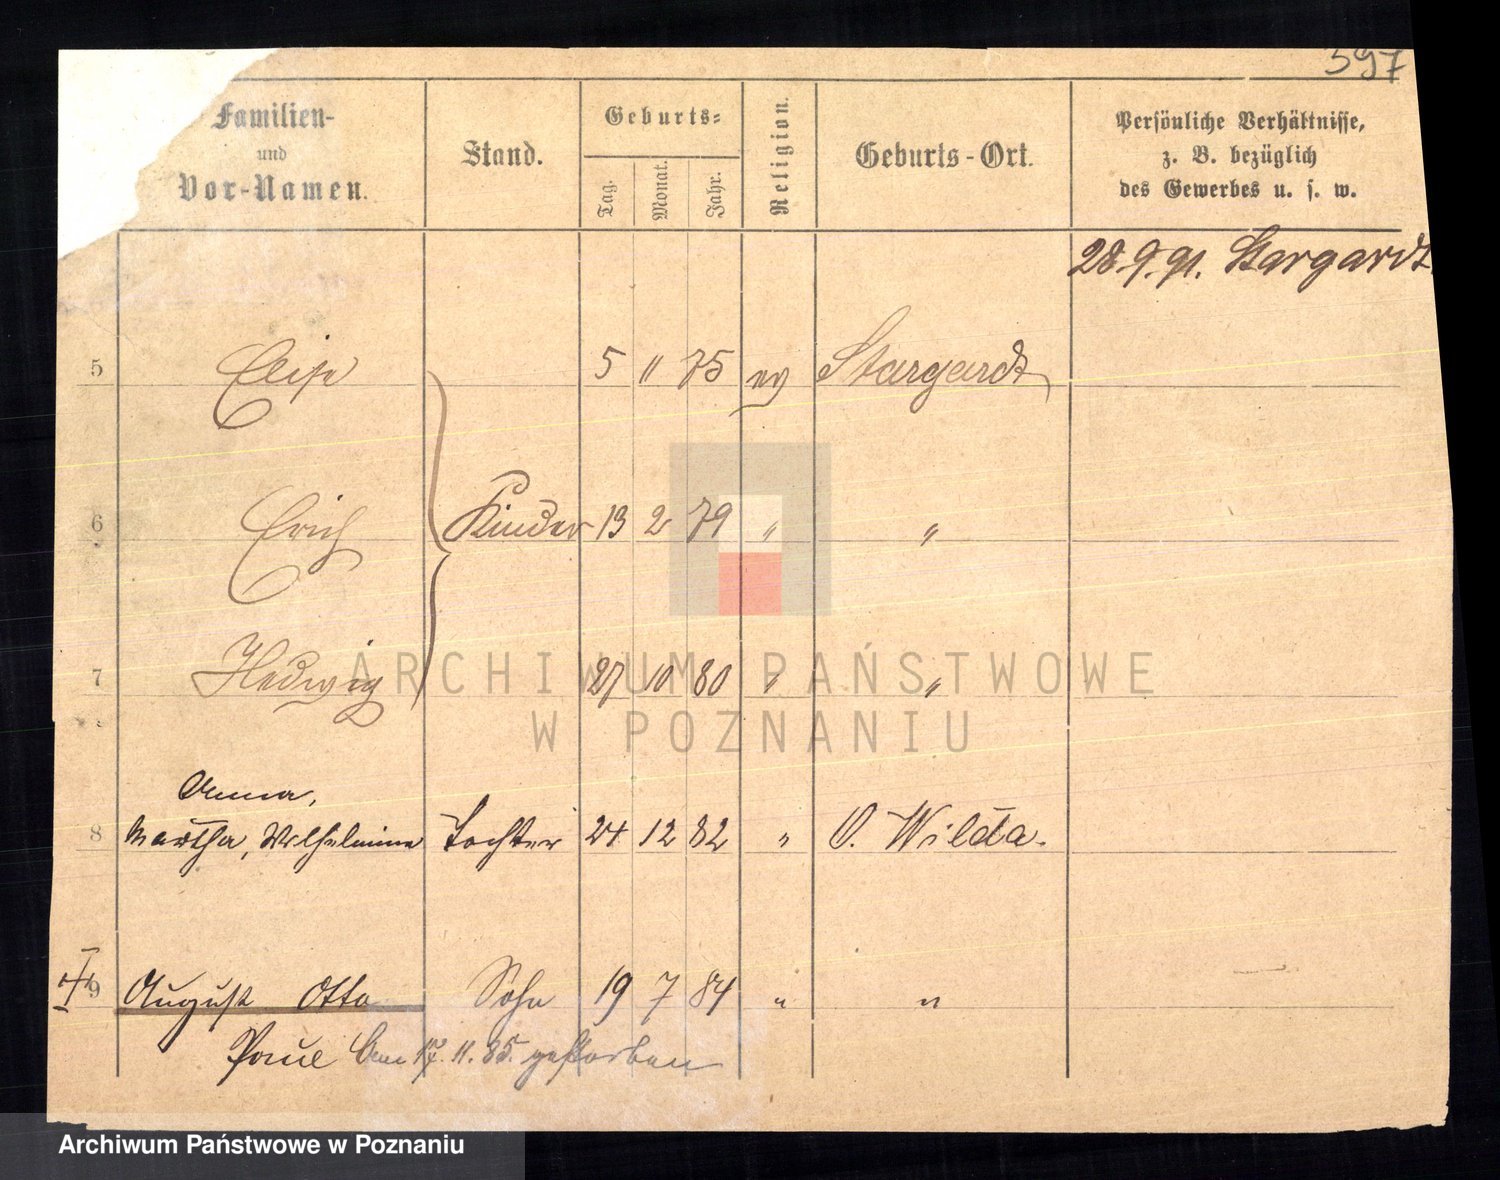 597
Familien-
und
Vor-Namen.
Stand.
Geburts-
Tag.
Monat.
Jahr.
Religion.
Geburts-Ort.
Persönliche Verhältnisse,
z. B. bezüglich
des Gewerbes u. s. w.
28.9.91. Stargardt
5 Elise 5 " 75 ev Stargardt
6 Erich Kinder 13 2 79 " "
7 Hedwig 27 10 80 " "
Anna,
8 Martha, Wilhelmine Tochter 24 12 82 " O. Wilda.
9 August Otto Sohn 19 7 84 " "
Paul 17. 11. 85. gestorben
ARCHIWUM PAŃSTWOWE
W POZNANIU
Archiwum Państwowe w Poznaniu